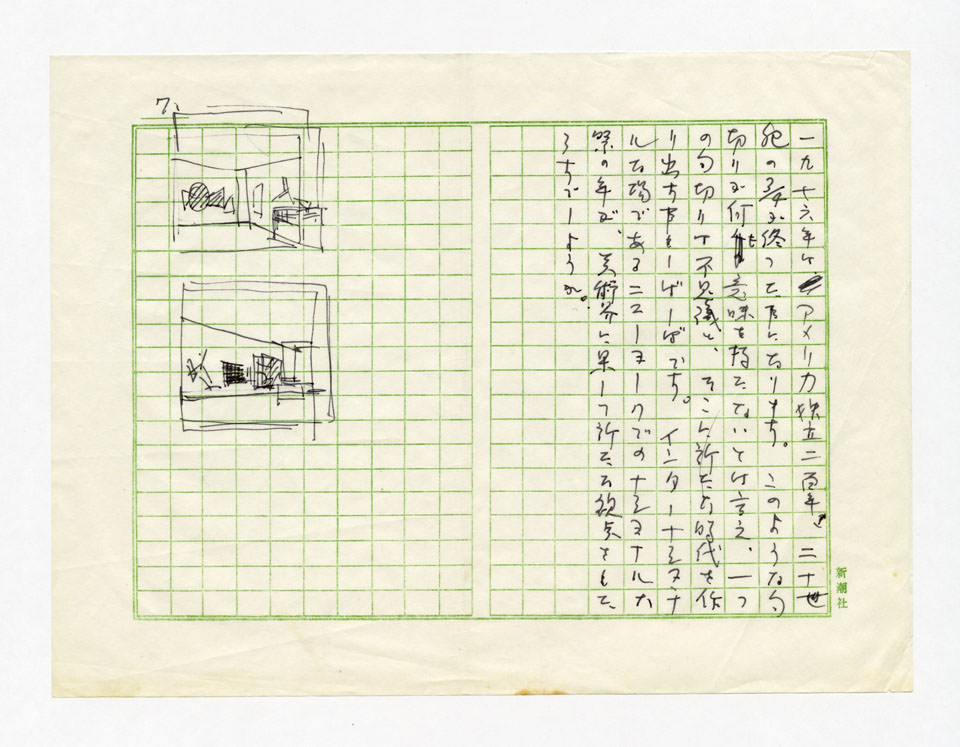 一九七六年は、アメリカ独立二百年、二十世
紀の3/4が終ったことになります。このような句
切りが何も意味を持たないとは言え、一つ
の句切りは不思議と、そこに新たな時代を作
り出す事もしばしばです。インターナショナ
ルな場であるニューヨークでのナショナルな
祭の年が、美術界に果して新たな視点をもた
らすでしょうか。
7.
新潮社